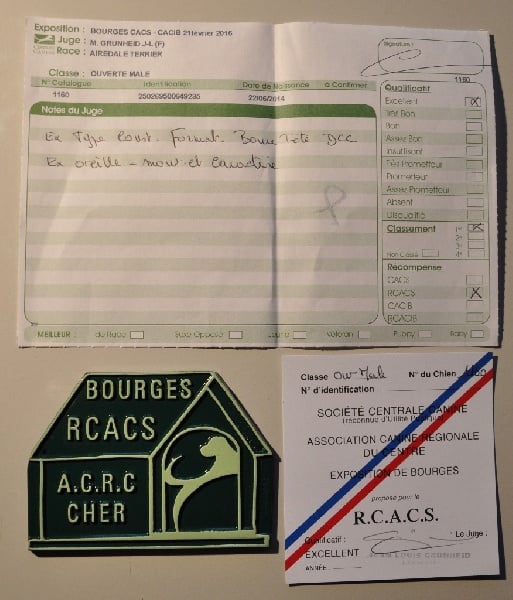 Exposition : BOURGES CACS - CACIB 21 février 2016
Juge : M. GRUNHEID J-L (F)
Race : AIREDALE TERRIER
Signature :
Classe : OUVERTE MALE
N° Catalogue Identification Date de Naissance à Confirmer
1160 22/06/2014
1160
Notes du Juge
Ex Type Const. Format. Bonne Tête
Ex oreille - mouv et caractère
Qualificatif
Excellent X
Très Bon
Bon
Assez Bon
Insuffisant
Très Prometteur
Prometteur
Assez Prometteur
Absent
Disqualifié
Classement X
Non Classé
Récompense
CACS
RCACS X
CACIB
RCACIB
MEILLEUR : de Race Sexe Opposé Jeune Vétéran Puppy Baby
BOURGES
RCACS
A.C.R.C
CHER
Classe Ouv Male N° du Chien 1160
N° d'identification
SOCIÉTÉ CENTRALE CANINE
(reconnue d'Utilité Publique)
ASSOCIATION CANINE RÉGIONALE
DU CENTRE
EXPOSITION DE BOURGES
propose pour le
R.C.A.C.S.
Qualificatif : Le Juge :
EXCELLENT JEAN LOUIS GRUNHEID
ANNÉE :